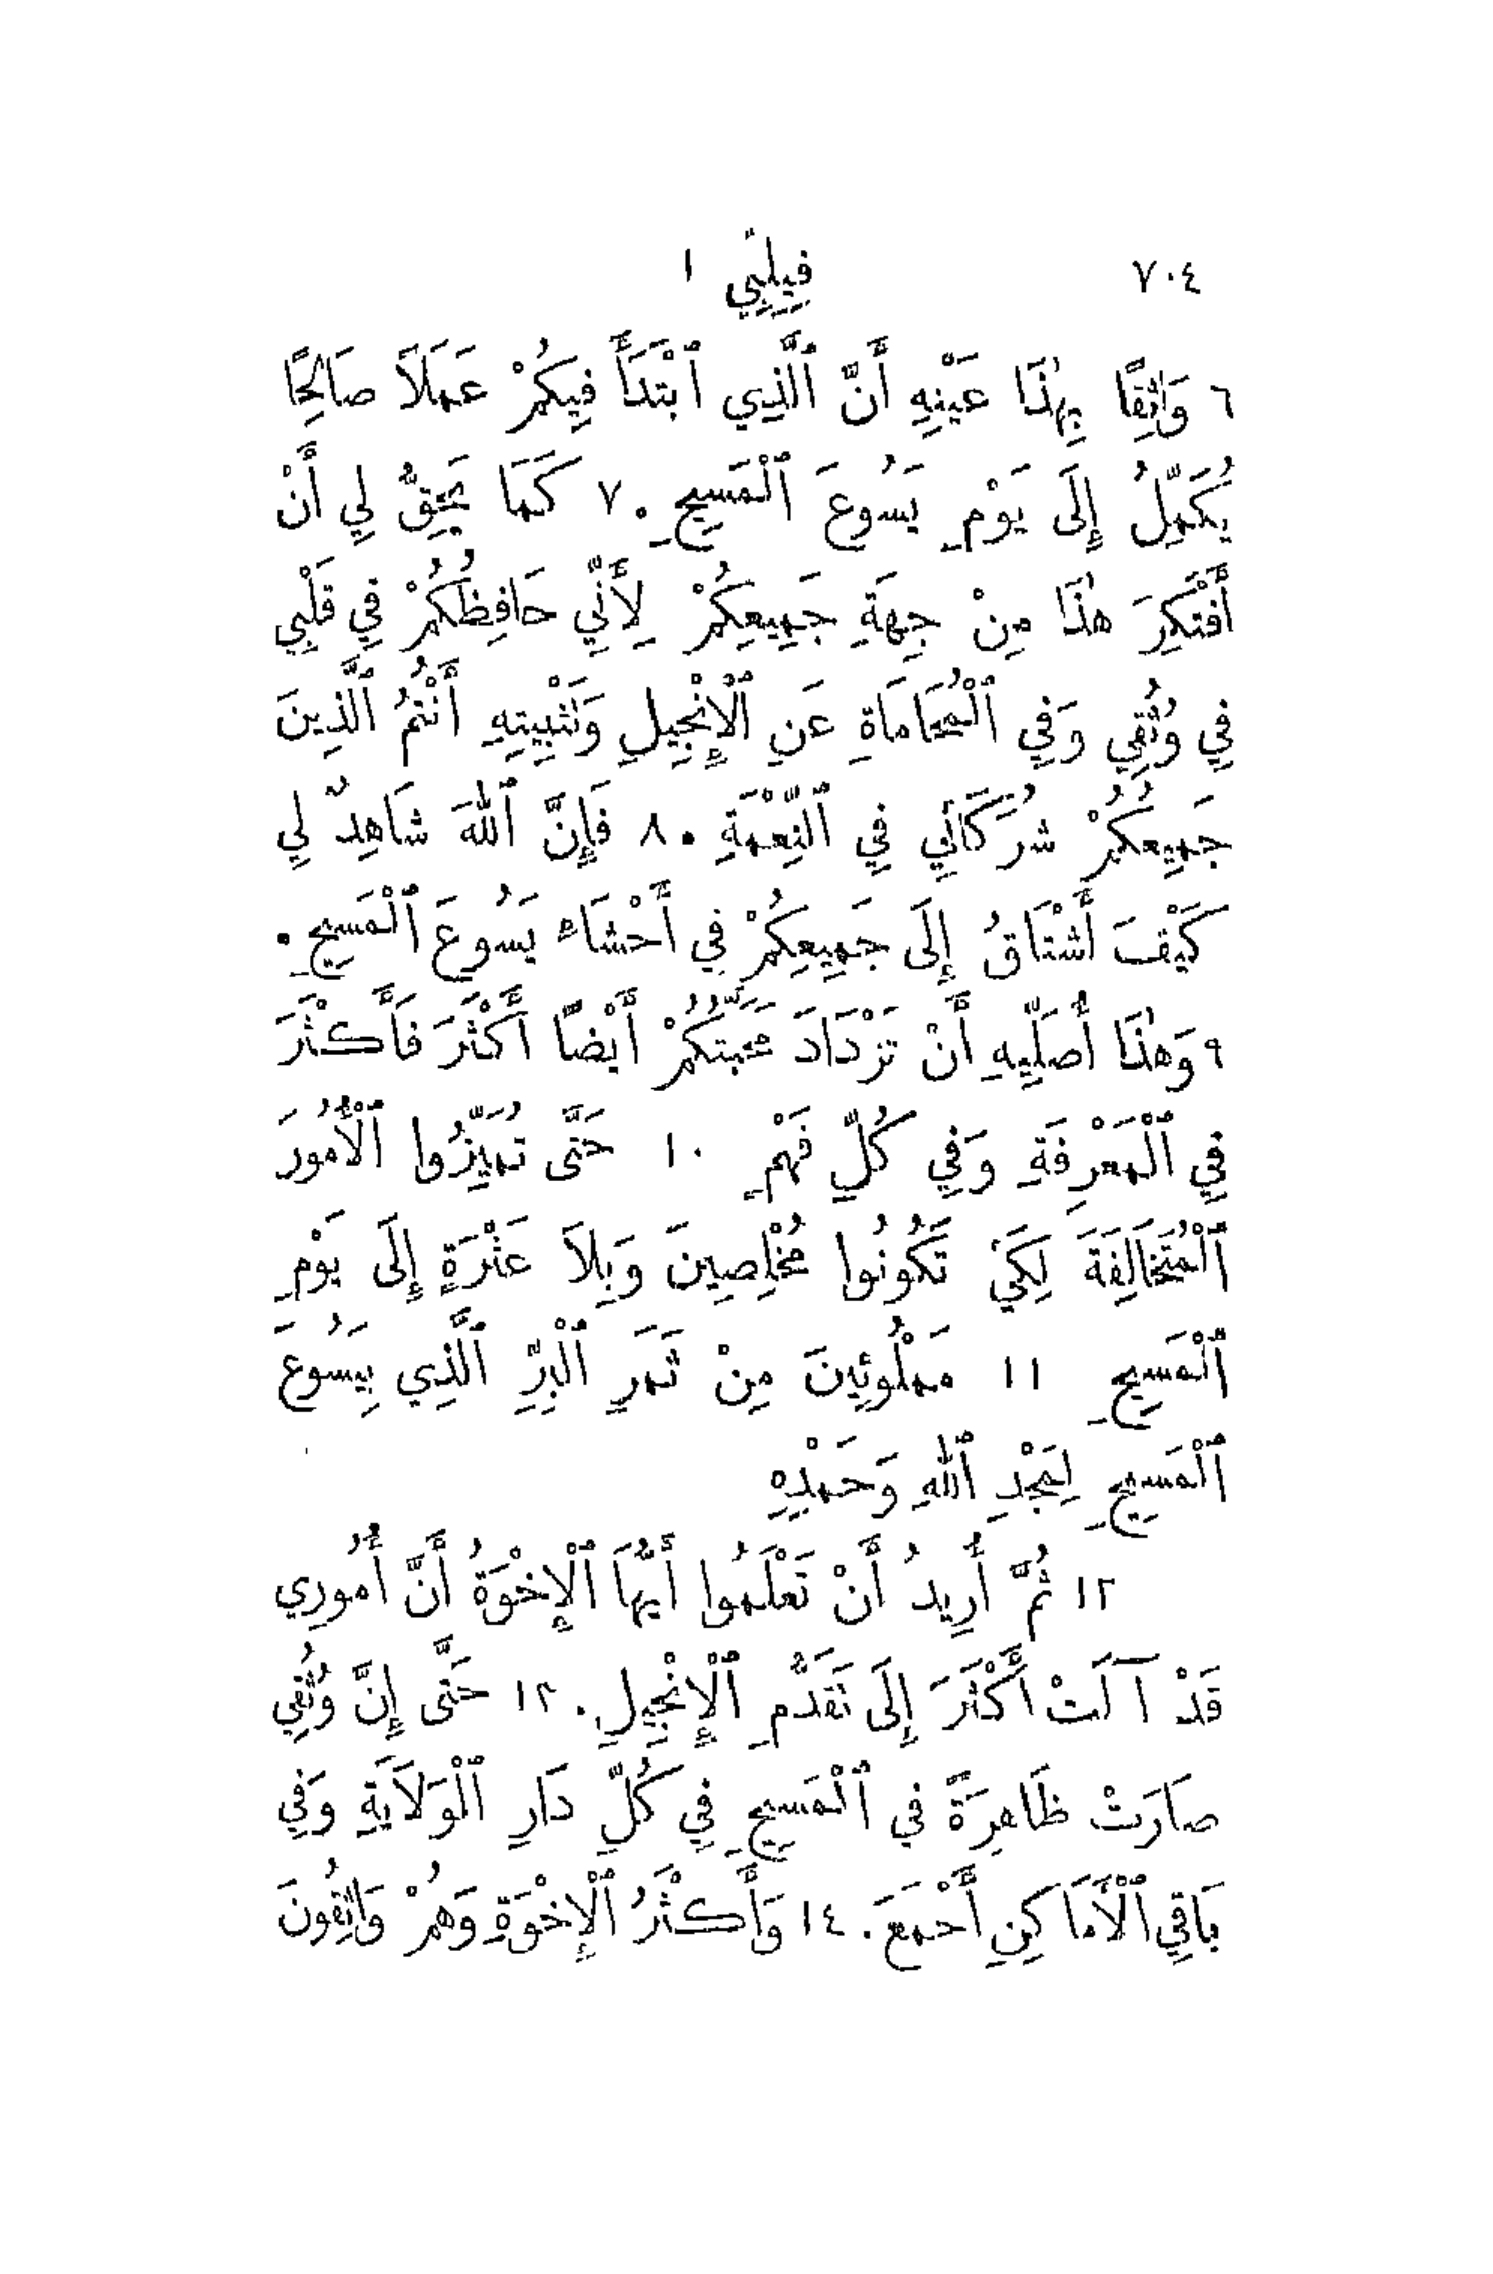 ٧٠٤ فِيلِبِّي ١
٦ وَاثِقًا بِهٰذَا عَيْنِهِ أَنَّ ٱلَّذِي ٱبْتَدَأَ فِيكُمْ عَمَلًا صَالِحًا
يُكَمِّلُ إِلَى يَوْمِ يَسُوعَ ٱلْمَسِيحِ. ٧ كَمَا يَحِقُّ لِي أَنْ
أَفْتَكِرَ هٰذَا مِنْ جِهَةِ جَمِيعِكُمْ لِأَنِّي حَافِظُكُمْ فِي قَلْبِي
فِي وُثُقِي وَفِي ٱلْمُحَامَاةِ عَنِ ٱلْإِنْجِيلِ وَتَثْبِيتِهِ أَنْتُمُ ٱلَّذِينَ
جَمِيعُكُمْ شُرَكَائِي فِي ٱلنِّعْمَةِ. ٨ فَإِنَّ ٱللهَ شَاهِدٌ لِي
كَيْفَ أَشْتَاقُ إِلَى جَمِيعِكُمْ فِي أَحْشَاءِ يَسُوعَ ٱلْمَسِيحِ.
٩ وَهٰذَا أُصَلِّيهِ أَنْ تَزْدَادَ مَحَبَّتُكُمْ أَيْضًا أَكْثَرَ فَأَكْثَرَ
فِي ٱلْمَعْرِفَةِ وَفِي كُلِّ فَهْمٍ ١٠ حَتَّى تُمَيِّزُوا ٱلْأُمُورَ
ٱلْمُتَخَالِفَةَ لِكَيْ تَكُونُوا مُخْلِصِينَ وَبِلَا عَثْرَةٍ إِلَى يَوْمِ
ٱلْمَسِيحِ ١١ مَمْلُوئِينَ مِنْ ثَمَرِ ٱلْبِرِّ ٱلَّذِي بِيَسُوعَ
ٱلْمَسِيحِ لِمَجْدِ ٱللهِ وَحَمْدِهِ
١٢ ثُمَّ أُرِيدُ أَنْ تَعْلَمُوا أَيُّهَا ٱلْإِخْوَةُ أَنَّ أُمُورِي
قَدْ آلَتْ أَكْثَرَ إِلَى تَقَدُّمِ ٱلْإِنْجِيلِ. ١٣ حَتَّى إِنَّ وُثُقِي
صَارَتْ ظَاهِرَةً فِي ٱلْمَسِيحِ فِي كُلِّ دَارِ ٱلْوِلَايَةِ وَفِي
بَاقِي ٱلْأَمَاكِنِ أَجْمَعَ. ١٤ وَأَكْثَرُ ٱلْإِخْوَةِ وَهُمْ وَاثِقُونَ